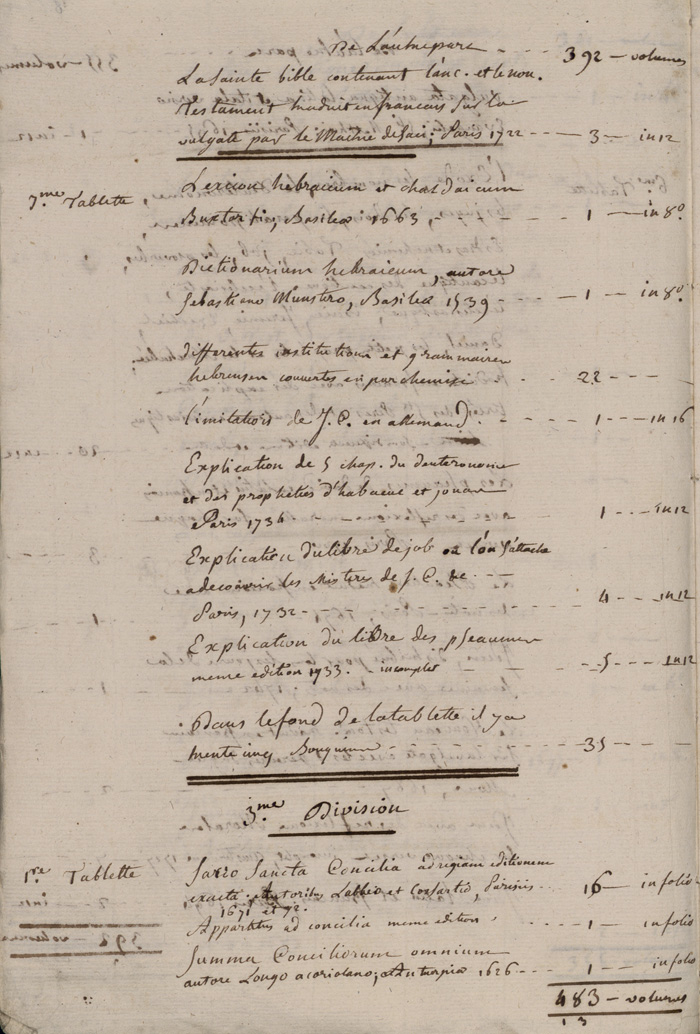 De L'autre part - - - 392 - volumes
La Sainte bible contenant l'anc. et le nou.
testament traduit en francais sur la
vulgate par le Maitre de Saci; Paris 1722 - - - 3 - in 12
7.me Tablette
Lexicon hebraicum et chaldaicum
Buxtorfio, Basileae 1663, - - - - 1 - in 8.o
Dictionarium hebraicum, autore
Sebastiano Munstero, Basilea 1539 - - - 1 - in 8.o
differentes institutions et grammaires
hebreuses couvertes en parchemin - - 22 - -
l'imitations de J. C. en allemand - - - 1 - in 16
Explication de 5 chap. du deuteronome
et des propheties d'habacuc et jonas
a Paris 1736 - - - 1 - in 12
Explication du libre de job où l'on s'attache
a decouvrir les Misteres de J. C. &c. - -
Paris, 1732 - - - - 4 - in 12
Explication du libre des pseaumes
meme edition 1733. - incomplet - - - 5 - - - in 12
Dans le fond de la tablette il y a
trente cinq Bouquins - - - 35 - -
3.me Division
1.re Tablette
Sacro Sancta Concilia ad regiam editionem
exacta autoribus Labbeo et Cossartio, Parisiis - - 16 - in folio
1671 et 72.
Apparatus ad concilia meme edition - - - 1 - in folio
Summa Conciliorum omnium
autore Longo a coriolano; Antuerpia 1626 - - - 1 - in folio
483 - volumes
1 3